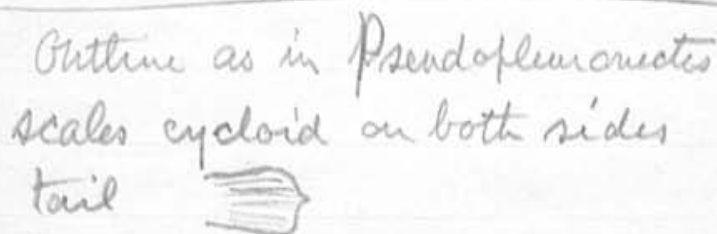 Outline as in Pseudopleuronectes
scales cycloid on both sides
tail